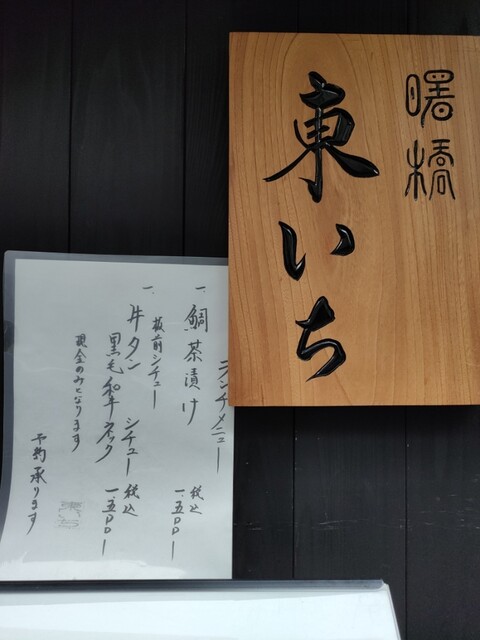 曙橋
東いち
ランチメニュー
一、鯛茶漬け 税込 一、五〇〇ー
一、板前シチュー
牛タン シチュー 税込
黒毛和牛ネック 一、五〇〇ー
現金のみとなります
予約承ります